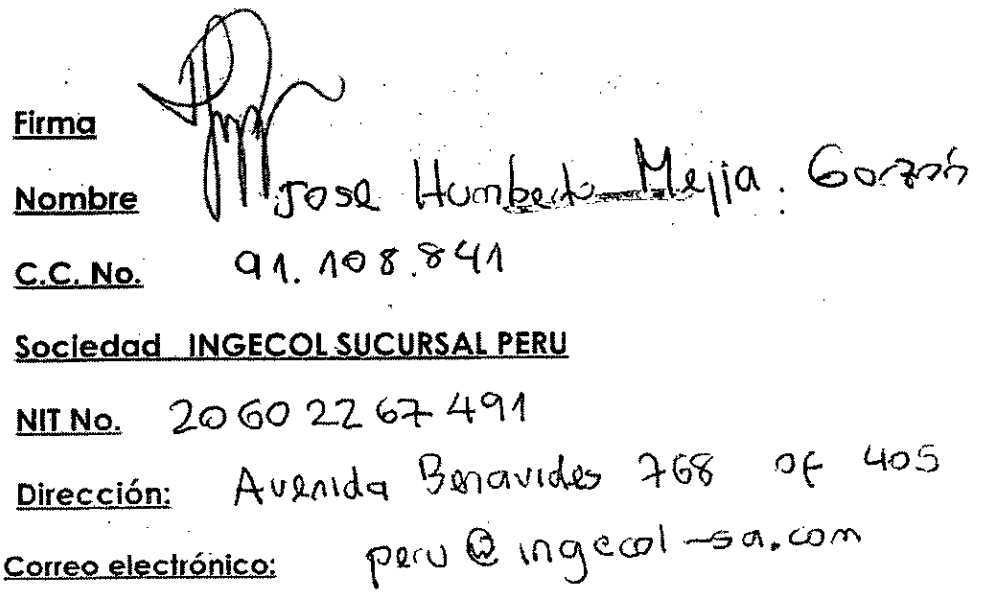 Firma
Nombre Jose Humberto Mejia. Garzón
C.C. No. 91.108.841
Sociedad INGECOL SUCURSAL PERU
NIT No. 20602267491
Dirección: Avenida Benavides 768 of 405
Correo electrónico: peru@ingecol-sa.com